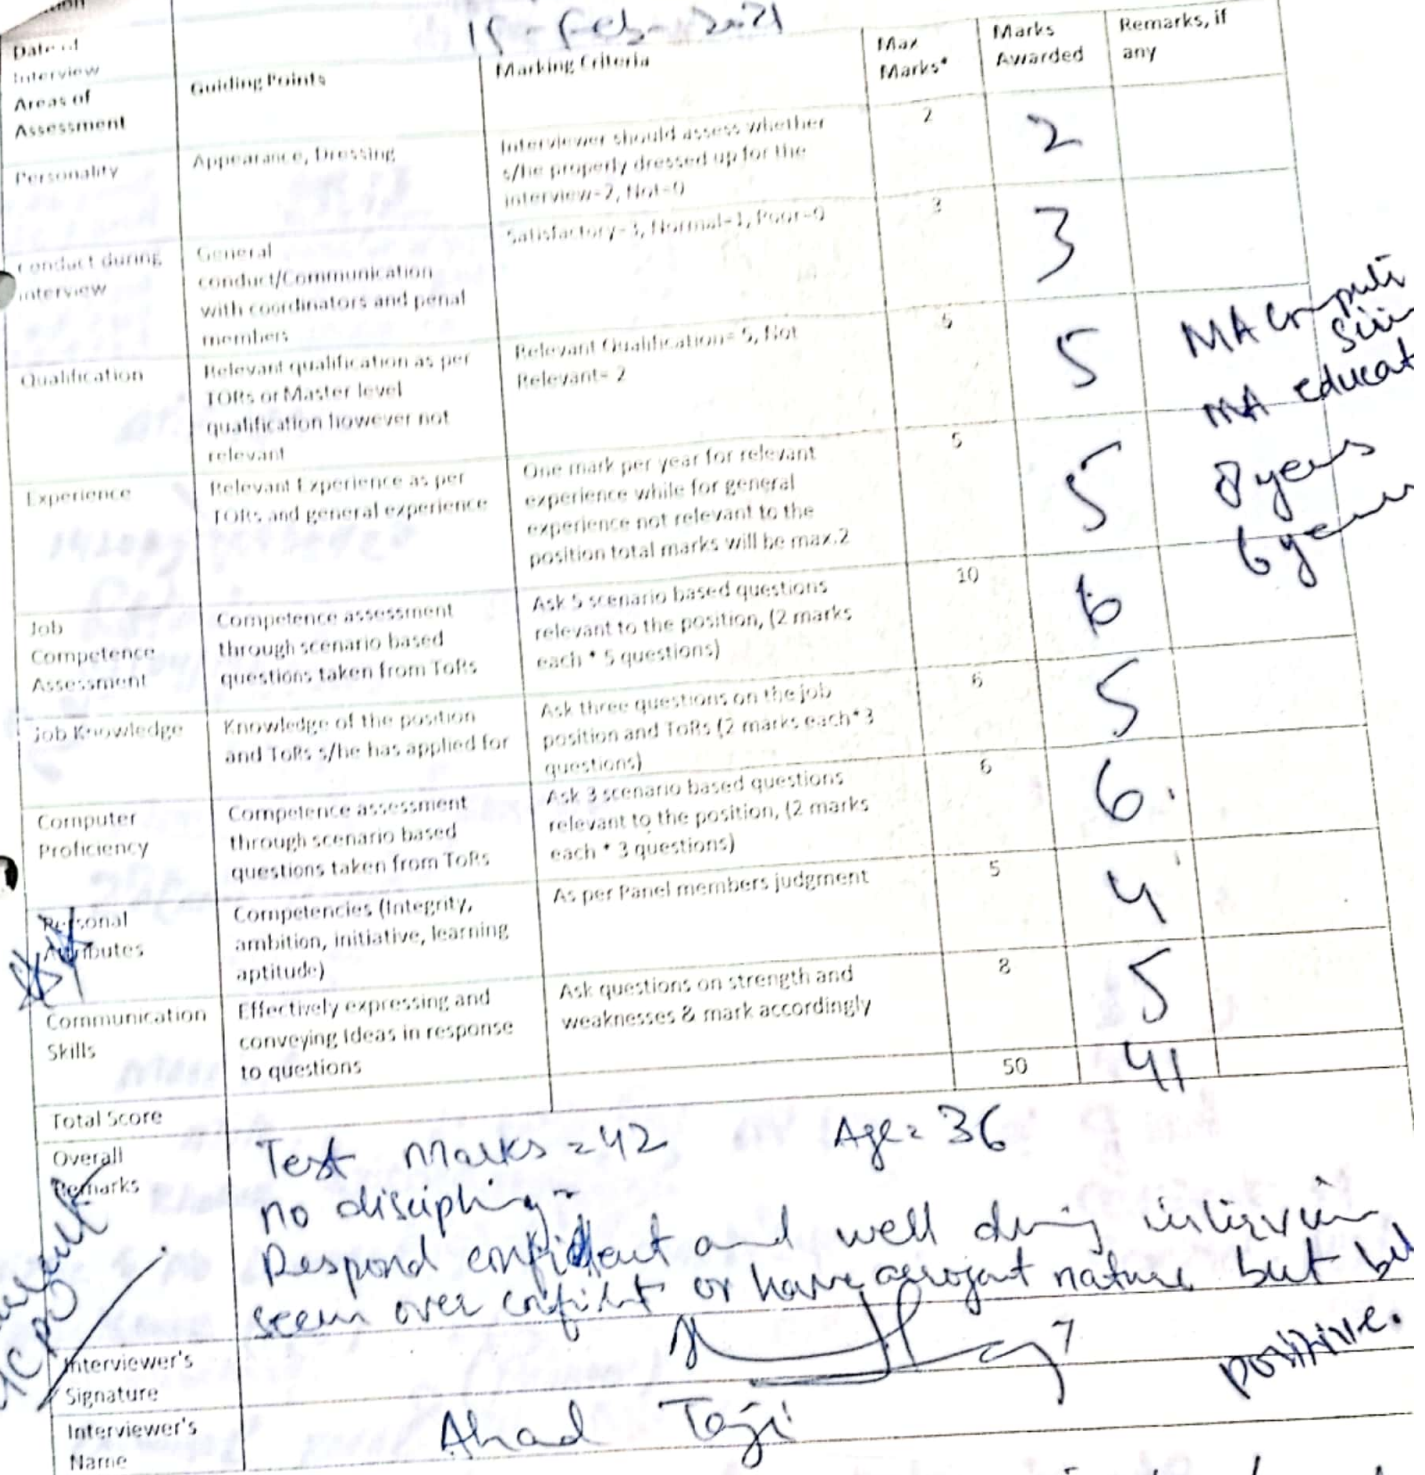 Date of Interview
15-Feb-2021
Areas of Assessment
Guiding Points
Marking Criteria
Max Marks*
Marks Awarded
Remarks, if any
Personality
Appearance, Dressing
Interviewer should assess whether
s/he properly dressed up for the
interview=2, Not=0
2
2
Conduct during
interview
General
conduct/Communication
with coordinators and penal
members
Satisfactory=3, Normal=1, Poor=0
3
3
Qualification
Relevant qualification as per
TORs or Master level
qualification however not
relevant
Relevant Qualification= 5, Not
Relevant= 2
5
5
MA
MA
Experience
Relevant Experience as per
TORs and general experience
One mark per year for relevant
experience while for general
experience not relevant to the
position total marks will be max.2
5
5
8 years
6 years
Job
Competence
Assessment
Competence assessment
through scenario based
questions taken from ToRs
Ask 5 scenario based questions
relevant to the position, (2 marks
each * 5 questions)
10
6
Job Knowledge
Knowledge of the position
and ToRs s/he has applied for
Ask three questions on the job
position and ToRs (2 marks each*3
questions)
6
5
Computer
Proficiency
Competence assessment
through scenario based
questions taken from ToRs
Ask 3 scenario based questions
relevant to the position, (2 marks
each * 3 questions)
6
6.
Personal
Attributes
Competencies (Integrity,
ambition, initiative, learning
aptitude)
As per Panel members judgment
5
4
Communication
Skills
Effectively expressing and
conveying ideas in response
to questions
Ask questions on strength and
weaknesses & mark accordingly
8
5
Total Score
50
41
Overall
Remarks
Test Marks = 42 Age = 36
no
Respond confident and well during interview
seem over confident or have arrogant nature but
positive.
Interviewer's
Signature
Interviewer's
Name
Ahad